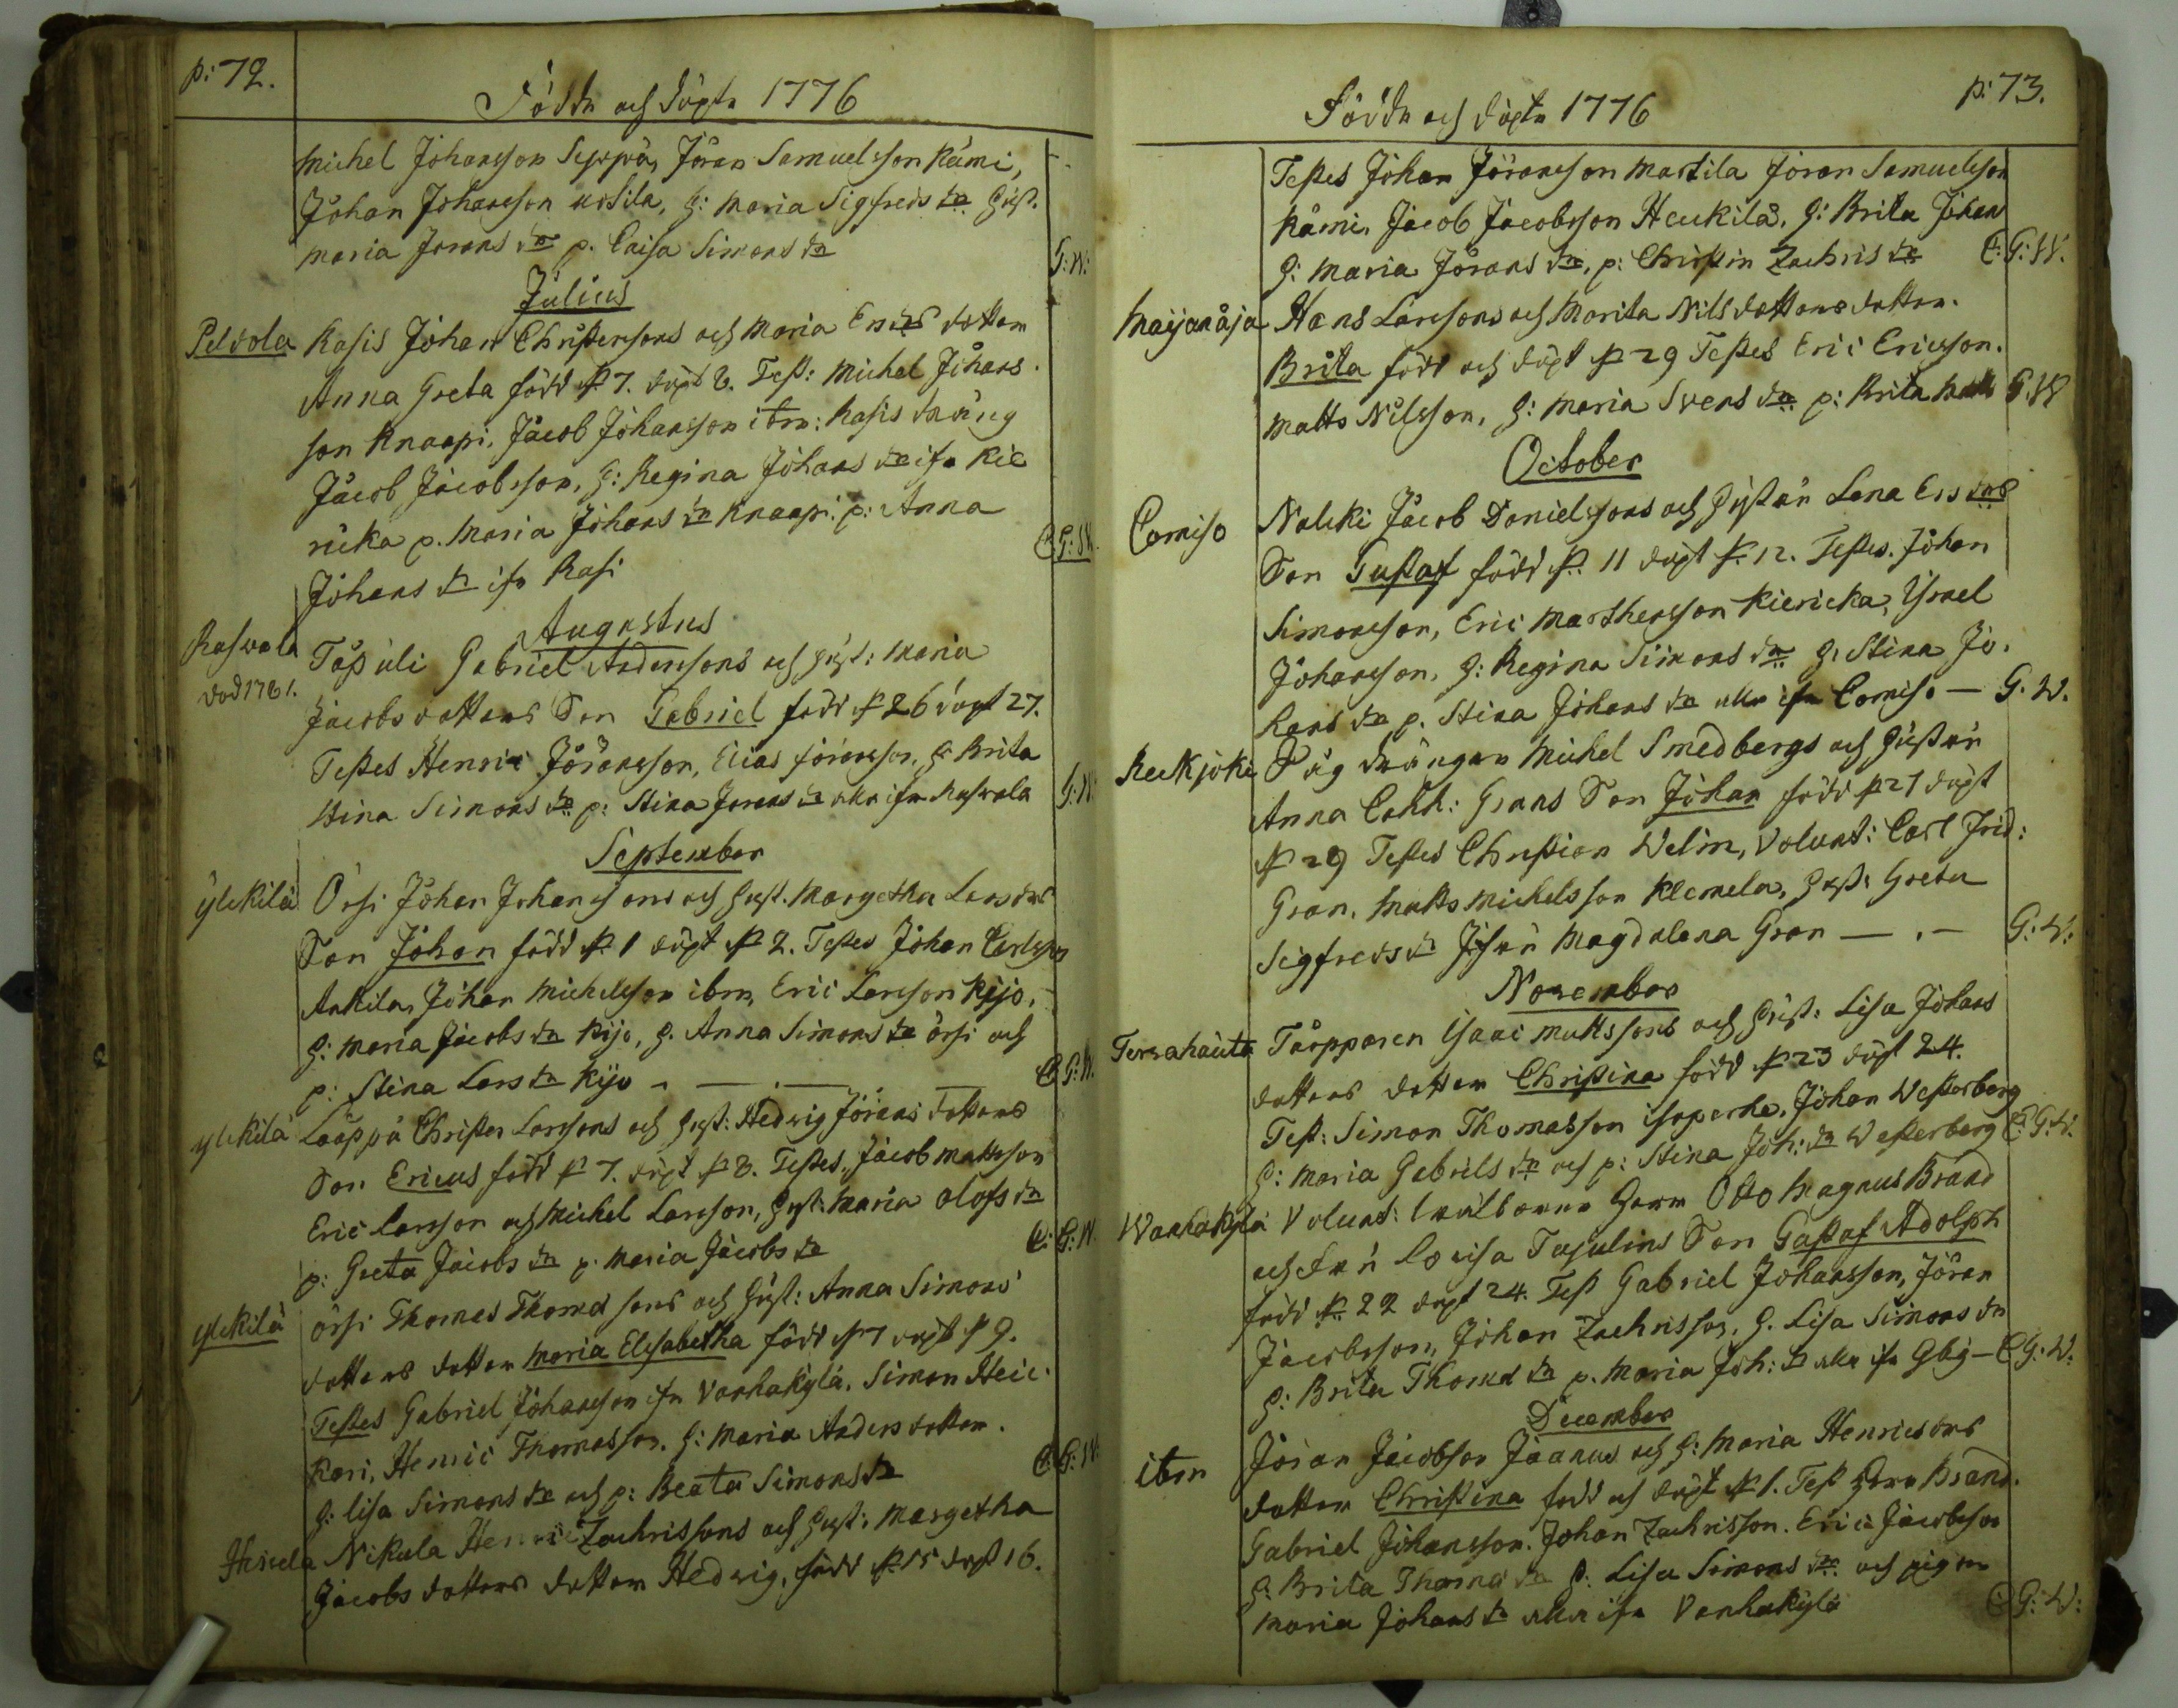 p: 72.
Födde och döpte 1776
Michel Johansson Seppä, Jöran Samuelsson Kämi,
Johan Johansson, h: Maria Sigfreds dr hust.
Maria Jorans dr p. Caisa Simons dr
G: W:
Julius
Peldola Rasis Johan Christerssons och Maria Ers drs dotter
Anna Greta född d 7. döpt 8. Test: Michel Johans
son Knaapi, Jacob Johansson ibm: Rasis dräng
Jacob Jacobsson, h: Regina Johans dr ifr Kie
ricka p. Maria Johans dr Knaapi. p: Anna
Johans dr ifr Rasi
C. G: W.
Augustus
Raswala Gabriel Anderssons och hust: Maria
död 1781. Jacobs dotters Son Gabriel född d 26 döpt 27.
Testes Henric Göransson, Elias Göransson, h: Brita
Stina Simons dr p: Stina Jorans dr alla ifr Raswala
G: W:
September
ylikilä Örsi Johan Johanssons och hust. Margetha Lars drs
Son Johan född d. 1 döpt d 2. Testes Johan Carlsson
Ankila, Johan Michelsson ibm, Eric Larsson Kijo,
h: Maria Jacobs dr Kijo, h. Anna Simons dr örsi och
p: Stina Lars dr Kijo
C. G: W.
ylikilä Läppä Christer Larssons och hust: Hedvig Jörans dotters
Son Ericus född d 7. döpt d 8. Testes, Jacob Mattsson
Eric Larsson och Michel Larsson, hust: Maria Olofs dr
p: Greta Jacobs dr p. Maria Jacobs dr
C: G: W.
ylikilä örsi Thomas Thomæ sons och hust: Anna Simons
dotters dotter Maria Elisabetha född d 7 döpt d 9.
Testes Gabriel Johansson ifr Vanhakylä, Simon Hei
kari, Henric Thomasson, h: Maria Anders dotter.
h: Lisa Simons dr och p: Beata Simons dr
C: G: W:
Nikula Henric Zachrissons och hust: Margetha
Jacobs dotters dotter Hedvig, född d. 15 döpt 16.
p: 73.
Födde och döpte 1776
Testes Johan Jöransson Martila Jöran Samuelsson
Kämi, Jacob Jacobsson Heikilä, h: Brita Johan
h: Maria Jörans dr, p: Christin Zachris dr C: G: W.
Maijanåja Hans Larssons och Marita Nils dotters dotter
Brita född och döpt d 29 Testes Eric Ericsson.
Matts Nilsson, h: Maria Svens dr p: Brita Matts G: W
October
Comiso Nalcki Jacob Danielssons och Hustrun Lena Ers drs
Son Gustaf född d. 11 döpt d. 12. Testes. Johan
Simonsson, Eric Marthensson Kiericka, Ysrael
Johansson, h: Regina Simons dr h: Stina Jo.
hans dr p. Stina Johans dr alla ifr Comiso — G. W.
Reckjoki Drängen Michel Smedbergs och Hustrun
Anna Cath: Grans Son Johan född d 27 döpt
d 29 Testes Christian Welin, Volunt: Carl Frid:
Gran, Matts Michelsson Klemela, hust: Greta
Sigfreds dr Jgfrun Magdalena Gran — . — G: W:
November
Torpparen Isaac Mattssons och hust: Lisa Johans
dotters dotter Christina född d 23 döpt 24.
Test: Simon Thomasson isoperhe, Johan Westerberg
h: Maria Gabriels dr och p: Stina Joh: dr Westerberg C: G: W.
Wanhakylä Volunt: Herr Otto Magnus Brand
och Fru Lovisa Son Gustaf Adolph
född d. 22 döpt 24. Test Gabriel Johansson, Jöran
Jacobsson, Johan Zachrisson, h. Lisa Simons dr
h: Brita Thomæ dr p. Maria Joh: dr alla ifr Gbÿ — C G: W:
December
ibm Jöran Jacobsson Jaanus och h: Maria Henrics drs
dotter Christina född och döpt d 1. Test Herr Brand.
Gabriel Johansson. Johan Zachrisson. Eric Jacobsson
h: Brita Thomæ dr h: Lisa Simons dr: och pigan
Maria Johans dr alla ifr Vanhakylä C: G: W: